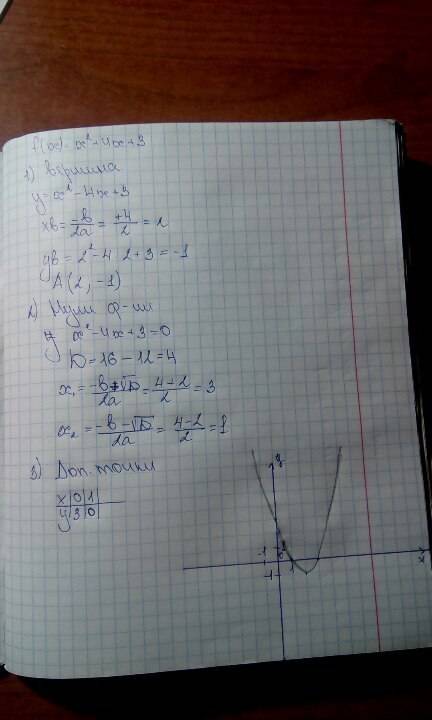 f(x) = x² - 4x + 3
1) Вершина
y = x² - 4x + 3
xв = -b/2a = +4/2 = 2
yв = 2² - 4 2 + 3 = -1
A (2, -1)
2) Нули ф-ии
y x² - 4x + 3 = 0
D = 16 - 12 = 4
x₁ = -b+√D/2a = 4-2/2 = 3
x₂ = -b-√D/2a = 4-2/2 = 1
3) Доп. точки
x | 0 | 1 |
y | 3 | 0 |
y
-1 1
0 1 x
-1